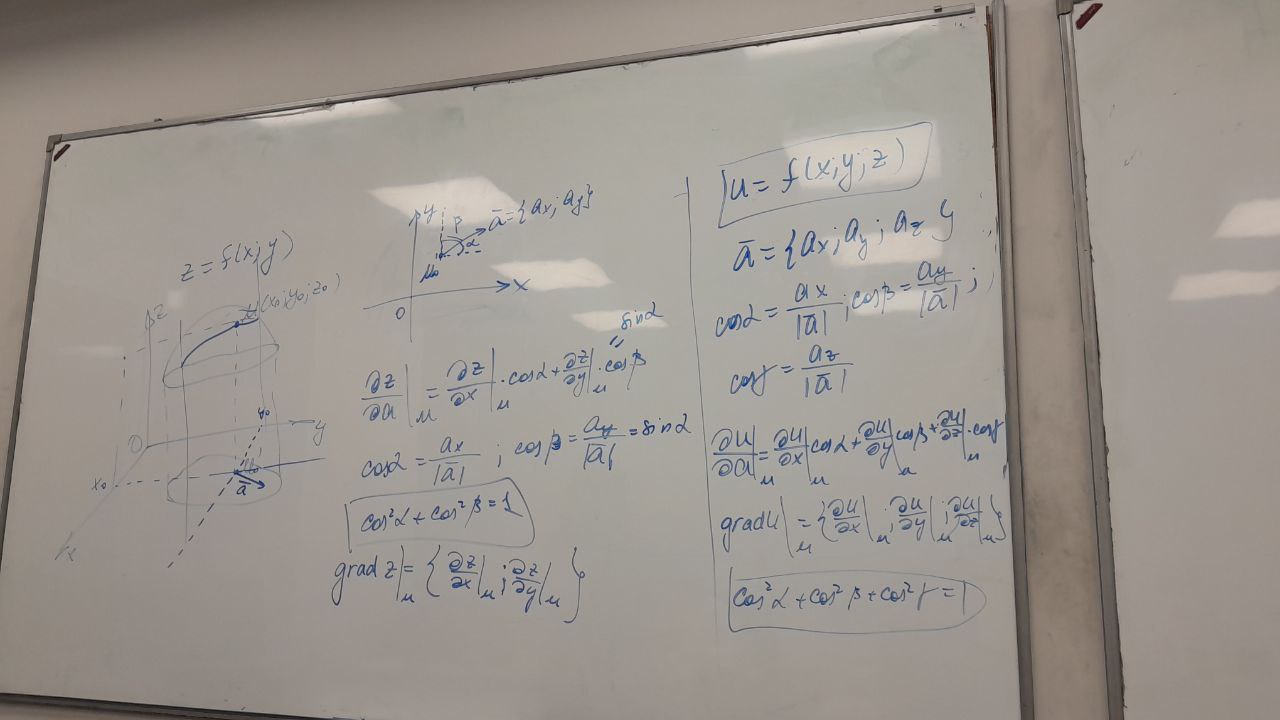 z = f(x; y)
z
M(x₀; y₀; z₀)
0
y₀
y
x₀
M₀
a̅
x
y
β
a̅ = {aₓ; a_y}
α
M₀
x
0
sin α
∂z/∂a|_M = ∂z/∂x|_M · cos α + ∂z/∂y|_M · cos β
cos α = aₓ/|a̅| ; cos β = a_y/|a̅| = sin α
cos²α + cos²β = 1
grad z|_M = {∂z/∂x|_M ; ∂z/∂y|_M}
u = f(x; y; z)
a̅ = {aₓ; a_y; a_z}
cos α = aₓ/|a̅| ; cos β = a_y/|a̅| ;
cos γ = a_z/|a̅|
∂u/∂a|_M = ∂u/∂x|_M cos α + ∂u/∂y|_M cos β + ∂u/∂z|_M · cos γ
grad u|_M = {∂u/∂x|_M ; ∂u/∂y|_M ; ∂u/∂z|_M}
cos²α + cos²β + cos²γ = 1